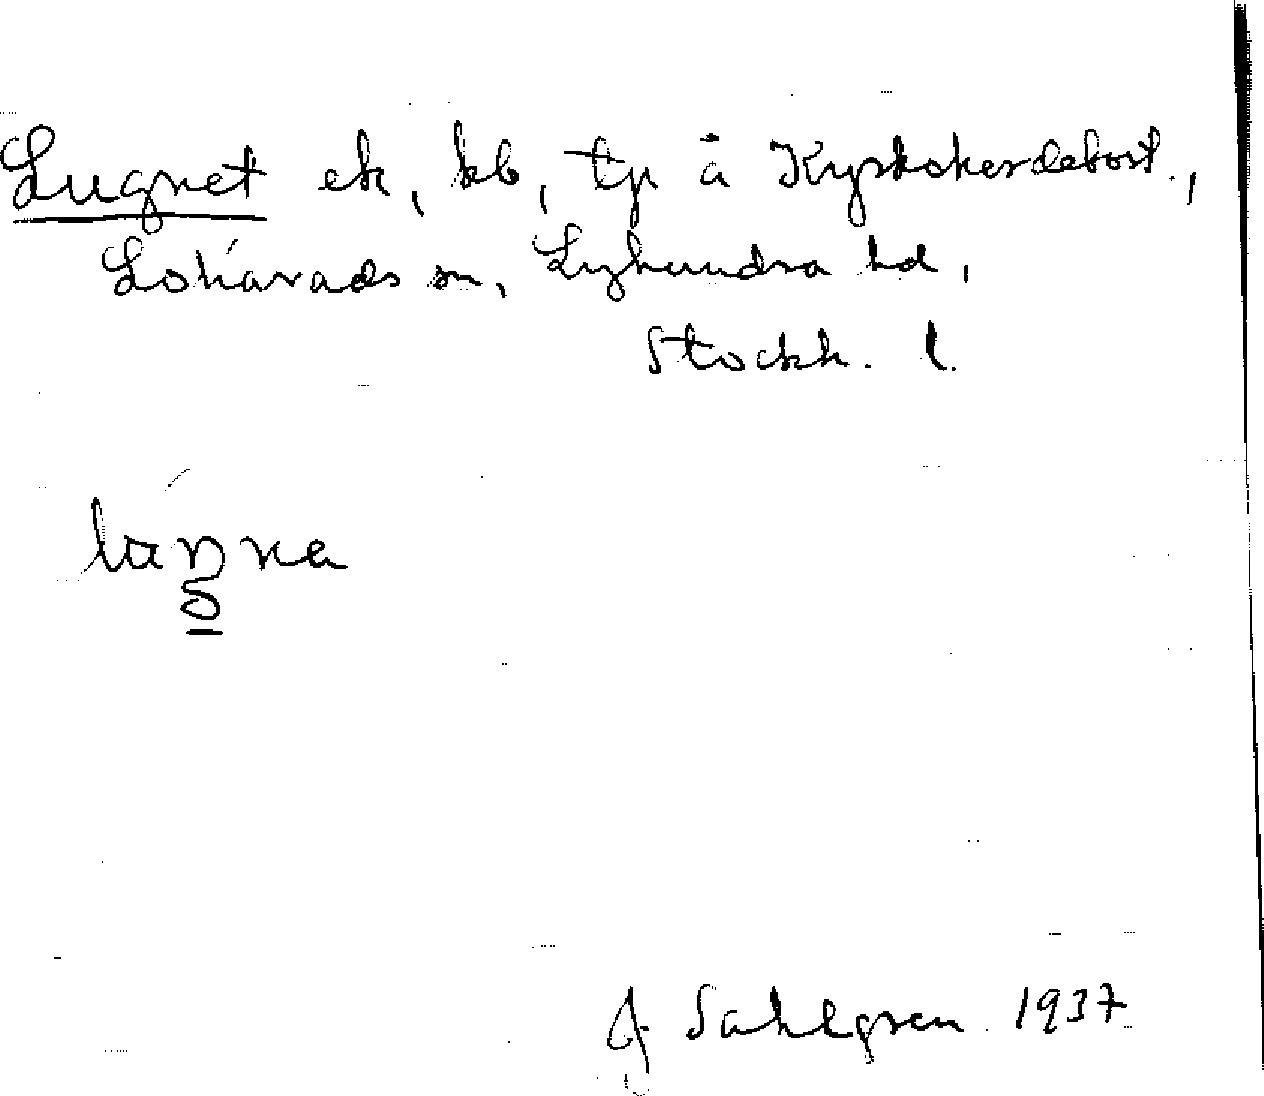 Lugnet ek, kb, tp å Kyrkoherdebost.,
Lohärads sn, Lyhundra hd,
Stockh. l.
J Sahlgren 1937